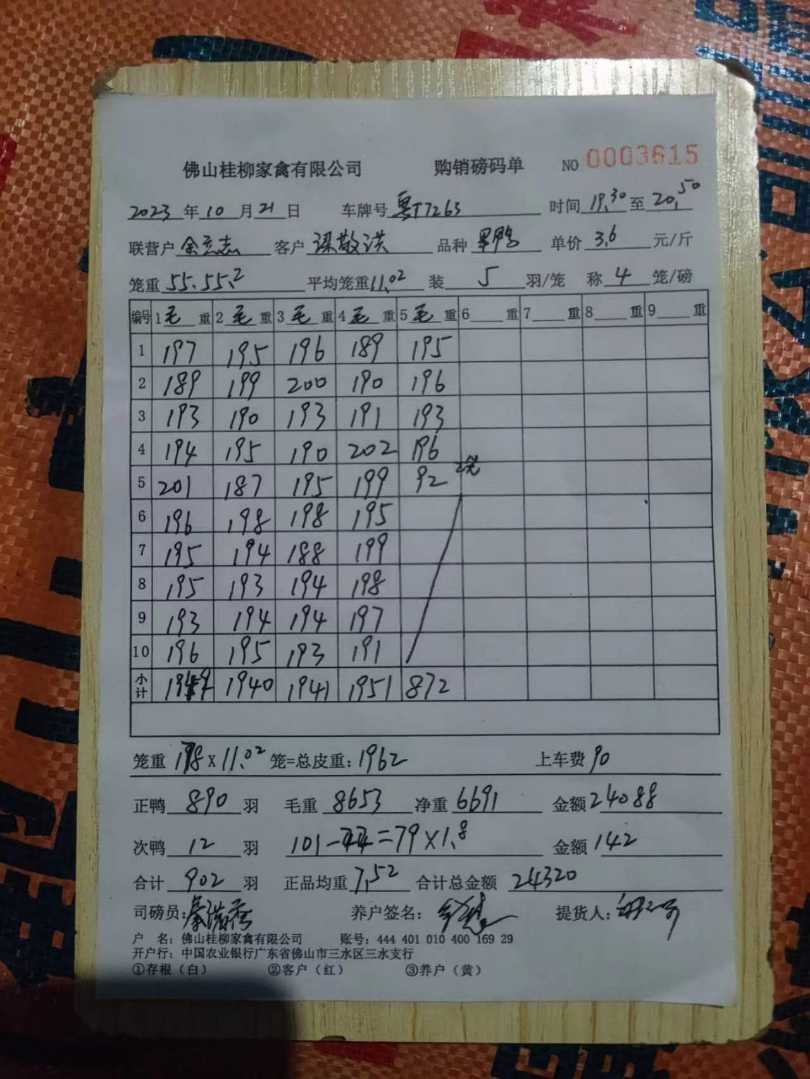 佛山桂柳家禽有限公司 购销磅码单 NO 0003615
2023 年 10 月 21 日 车牌号 粤T7265 时间 19.30 至 20.50
联营户 客户 梁敬洪 品种 单价 3.6 元/斤
笼重 55.55.2 平均笼重 11.02 装 5 羽/笼 称 4 笼/磅
编号 1 毛 重 2 毛 重 3 毛 重 4 毛 重 5 毛 重 6 重 7 重 8 重 9 重
1 197 195 196 189 195
2 189 199 200 190 196
3 193 190 193 191 193
4 194 195 190 202 196
5 201 187 195 199 92
6 196 198 198 195
7 195 194 188 199
8 195 193 194 198
9 193 194 194 197
10 196 195 193 191
小计 1949 1940 1941 1951 872
笼重 178 X 11.02 笼=总皮重: 1962 上车费 90
正鸭 890 羽 毛重 8653 净重 6691 金额 24088
次鸭 12 羽 101-22=79×1.8 金额 142
合计 902 羽 正品均重 7.52 合计总金额 24320
司磅员: 养户签名: 提货人:
户 名: 佛山桂柳家禽有限公司 账号: 444 401 010 400 169 29
开户行: 中国农业银行广东省佛山市三水区三水支行
①存根(白) ②客户(红) ③养户(黄)